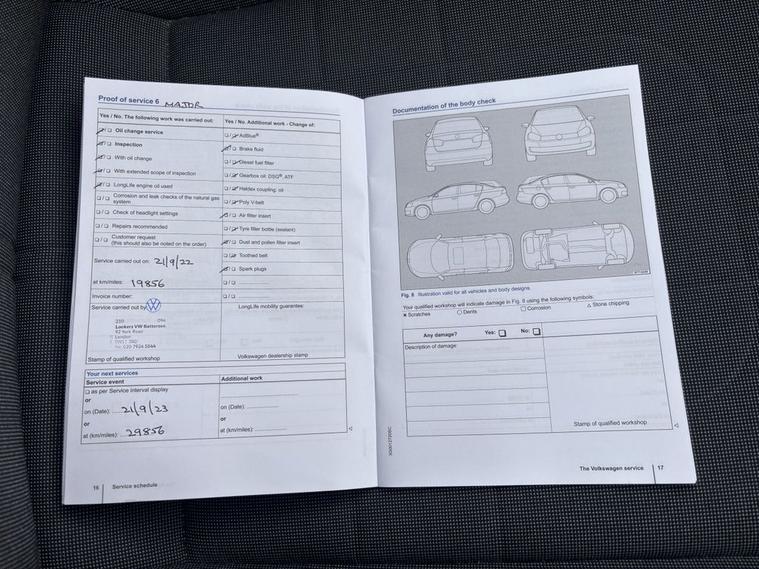 Proof of service 6 MAJOR
Yes / No. The following work was carried out:
Oil change service
Inspection
With oil change
With extended scope of inspection
LongLife engine oil used
Corrosion and leak checks of the natural gas
system
Check of headlight settings
Repairs recommended
Customer request
(this should also be noted on the order)
Service carried out on: 21/9/22
at km/miles: 19856
Invoice number:
Service carried out by
Lookers VW Battersea
London
Stamp of qualified workshop
Yes / No. Additional work - Change of:
AdBlue®
Brake fluid
Diesel fuel filter
Gearbox oil: DSG®, ATF
Haldex coupling: oil
Poly V-belt
Air filter insert
Tyre filler bottle (sealant)
Dust and pollen filter insert
Toothed belt
Spark plugs
LongLife mobility guarantee:
Volkswagen dealership stamp
Your next services
Service event
as per Service interval display
or
on (Date): 21/9/23
or
at (km/miles): 29856
Additional work
on (Date):
or
at (km/miles):
16 Service schedule
Documentation of the body check
Fig. 8 Illustration valid for all vehicles and body designs.
Your qualified workshop will indicate damage in Fig. 8 using the following symbols:
× Scratches ○ Dents □ Corrosion △ Stone chipping
Any damage? Yes: No:
Description of damage:
Stamp of qualified workshop
The Volkswagen service 17